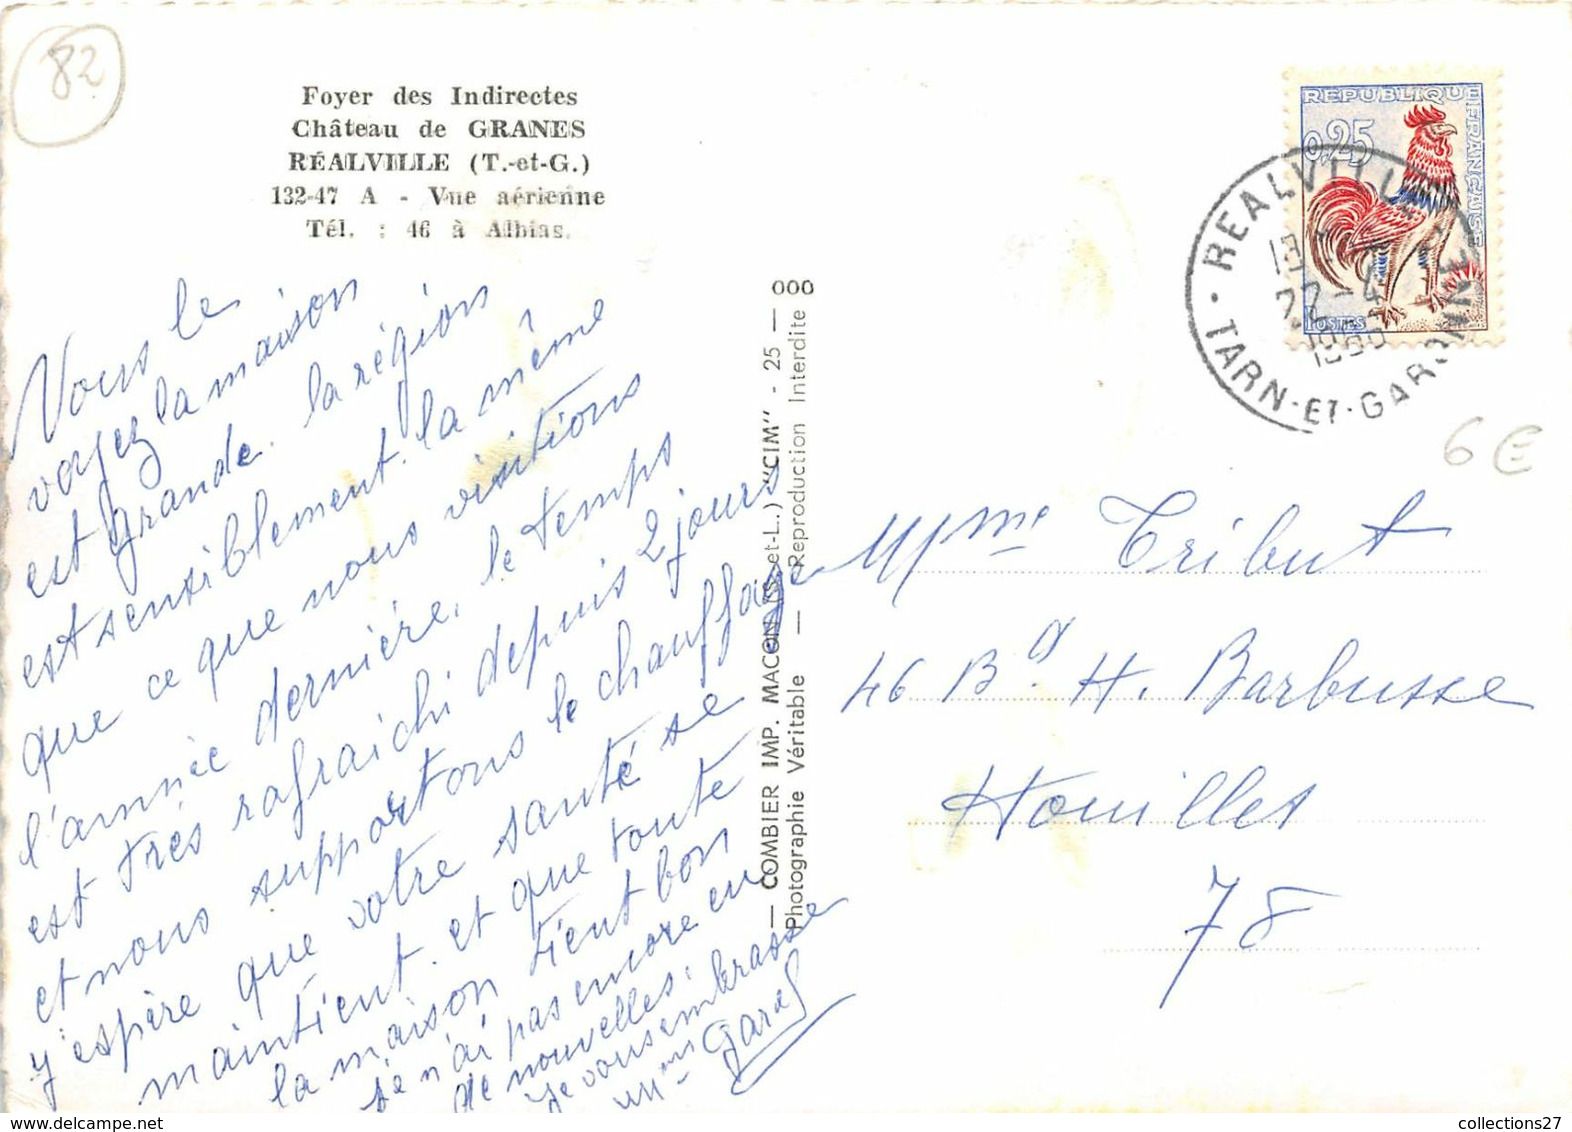 82
Foyer des Indirectes
Château de GRANES
RÉALVILLE (T.-et-G.)
132-47 A - Vue aérienne
Tél. : 46 à Albias.
Vous le
voyez la maison
est grande. la région
est sensiblement. la même
que ce que nous visitions
l'année dernière, le temps
est très rafraichi depuis 2 jours
et nous supportons le chauffage
j'espère que votre santé se
maintient. et que toute
la maison tient bon
je n'ai pas encore eu
de nouvelles.
je vous embrasse
Mme
— COMBIER IMP. MACON (S.-et-L.) "CIM" - 25 — 000
Photographie Véritable — Reproduction Interdite
REPUBLIQUE FRANÇAISE
0,25
POSTES
REALVILLE
TARN-ET-GARONNE
6 €
Mme Tribut
46 Bd. H. Barbusse
Houilles
78
collections27